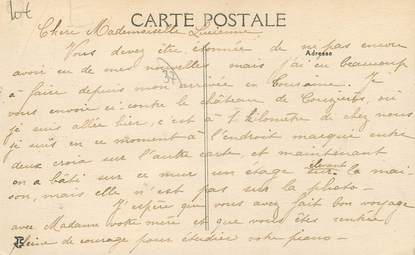 CARTE POSTALE
Chère Mademoiselle Lucienne
Vous devez être étonnée de ne pas encore
Adresse
avoir eu de mes nouvelles mais j'ai eu beaucoup
à faire depuis mon arrivée en Touraine. Je
vous envoie ci-contre le château de où
je suis allée hier, c'est à 1 kilomètre de chez nous
je suis en ce moment à l'endroit marqué entre
deux croix sur l'autre carte, et maintenant
on a bâti sur ce mur un étage devant la mai-
son, mais elle n'est pas sur la photo -
J'espère que vous avez fait bon voyage
avec Madame votre mère et que vous êtes rentrée
pleine de courage pour étudier votre piano -